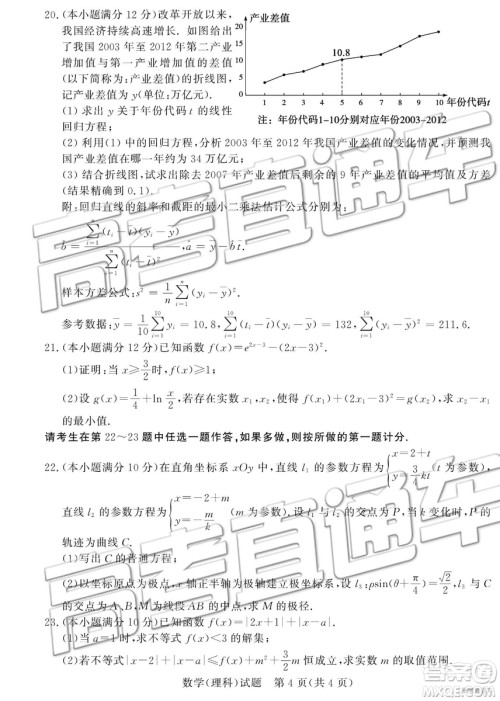 20.(本小题满分 12 分)改革开放以来，
我国经济持续高速增长. 如图给出了
我国 2003 年至 2012 年第二产业
增加值与第一产业增加值的差值
(以下简称为:产业差值)的折线图，
记产业差值为 y(单位:万亿元).
(1)求出 y 关于年份代码 t 的线性
回归方程;
产业差值
20
15
10
5
0
10.8
1 2 3 4 5 6 7 8 9 10 年份代码 t
注：年份代码1-10分别对应年份2003-2012
(2)利用(1)中的回归方程，分析 2003 年至 2012 年我国产业差值的变化情况，并预测我
国产业差值在哪一年约为 34 万亿元;
(3)结合折线图，试求出除去 2007 年产业差值后剩余的 9 年产业差值的平均值及方差
(结果精确到 0.1).
附:回归直线的斜率和截距的最小二乘法估计公式分别为:
b̂=∑(tᵢ-t̄)(yᵢ-ȳ)/∑(tᵢ-t̄)²，â=ȳ-b̂t̄.
样本方差公式:s²=1/n ∑(yᵢ-ȳ)².
参考数据:ȳ=1/10 ∑yᵢ=10.8，∑(tᵢ-t̄)(yᵢ-ȳ)=132，∑(yᵢ-ȳ)²=211.6.
21.(本小题满分 12 分)已知函数 f(x)=e²ˣ⁻³-(2x-3)².
(1)证明:当 x≥3/2 时，f(x)≥1;
(2)设 g(x)=1/4+ln x/2，若存在实数 x₁，x₂，使得 f(x₁)=g(x₂)，求 x₂-x₁
的最小值.
请考生在第 22～23 题中任选一题作答，如果多做，则按所做的第一题计分.
22.(本小题满分 10 分)在直角坐标系 xOy 中，直线 l₁ 的参数方程为{x=2+t, y=3/4 kt (t 为参数)，
直线 l₂ 的参数方程为{x=-2+m, y=-m/k (m 为参数). 设 l₁ 与 l₂ 的交点为 P，当 k 变化时，P 的
轨迹为曲线 C.
(1)写出 C 的普通方程;
(2)以坐标原点为极点，x 轴正半轴为极轴建立极坐标系，设 l₃:ρsin(θ+π/4)=√2/2，l₃ 与 C
的交点为 A，B，M 为线段 AB 的中点，求 M 的极径.
23.(本小题满分 10 分)已知函数 f(x)=|2x+1|+|x-1|.
(1)当 a=1 时，求不等式 f(x)<3 的解集;
(2)若不等式|x-1|+f(x)≤+m²+3/2 m 恒成立，求实数 m 的取值范围.
数学(理科)试题 第 4 页(共 4 页)
高考直通车
高考直通车